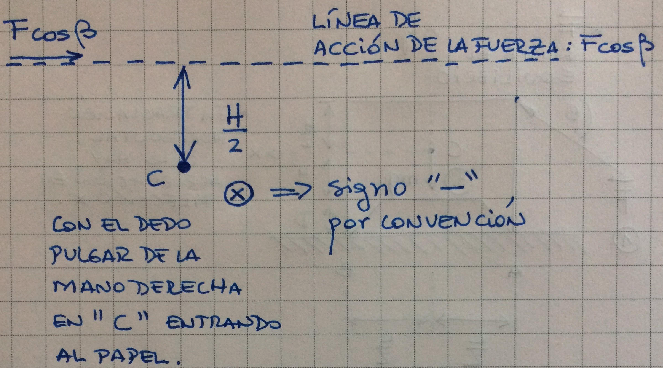 F cos β
LÍNEA DE
ACCIÓN DE LA FUERZA: F cos β
H
2
C
⊗ ⇒ signo "–"
por CONVENCIÓN
CON EL DEDO
PULGAR DE LA
MANO DERECHA
EN "C" ENTRANDO
AL PAPEL.